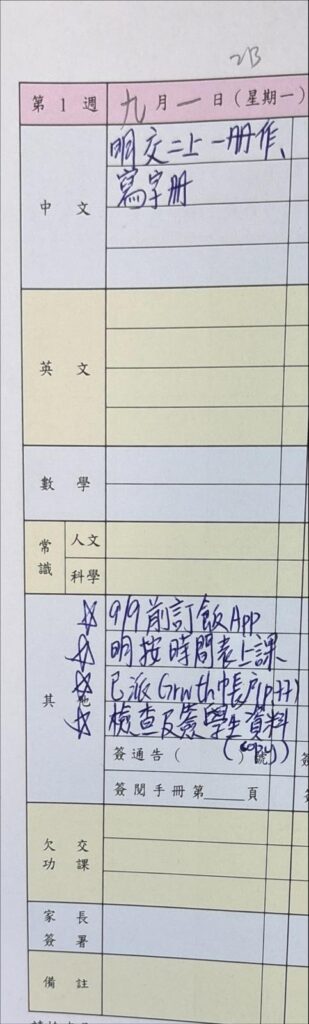 2B
第 1 週 九 月 一 日 (星期一)
中 文 明交二上一冊作、
寫字冊
英 文
數 學
常識 人文
科學
其 他 ☆ 9/9前訂飯App
☆ 明按時間表上課
☆ 已派Grwth帳戶(p77)
☆ 檢查及簽學生資料
(copy)
簽通告( )號
簽閱手冊第____頁
欠 交
功 課
家 長
簽 署
備 註